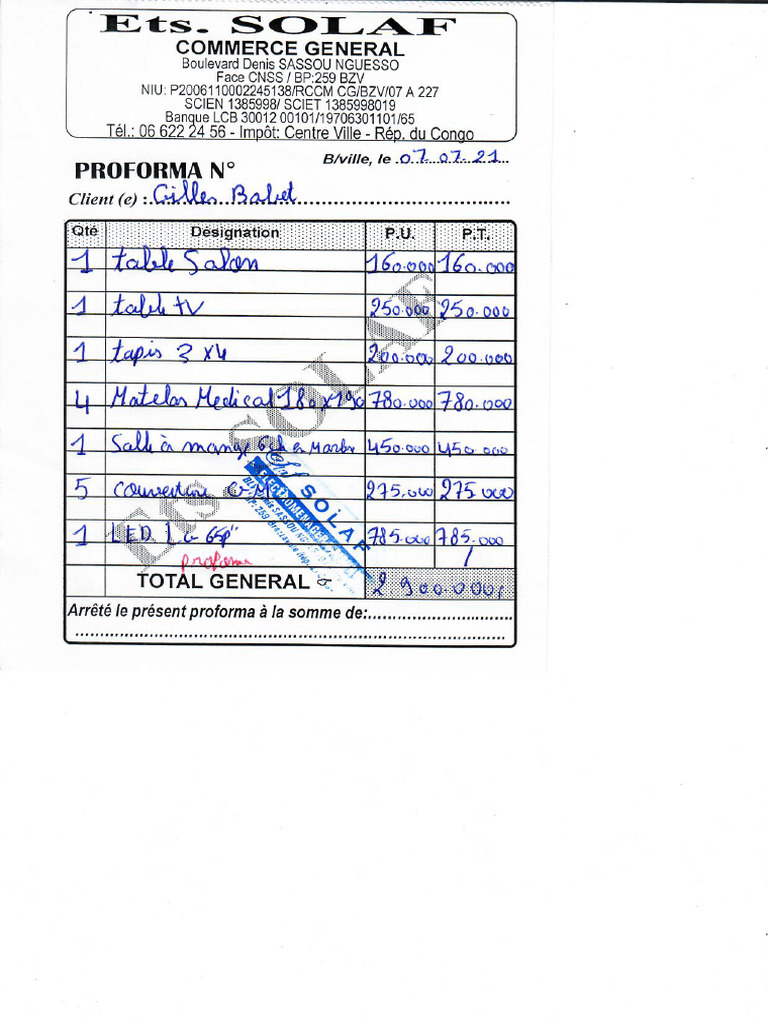 Ets. SOLAF
COMMERCE GENERAL
Boulevard Denis SASSOU NGUESSO
Face CNSS / BP:259 BZV
NIU: P2006110002245138/RCCM CG/BZV/07 A 227
SCIEN 1385998/ SCIET 1385998019
Banque LCB 30012 00101/19706301101/65
Tél.: 06 622 24 56 - Impôt: Centre Ville - Rép. du Congo
B/ville, le 07.07.21
PROFORMA N°
Client (e) : Gilles Babet
Qté Désignation P.U. P.T.
1 table Salon 160.000 160.000
1 table tv 250.000 250.000
1 tapis 3 x4 200.000 200.000
4 Matelas Medical 180x190 780.000 780.000
1 Salle à mange 6ch en Marbr 450.000 450.000
5 couverture G M 275.000 275.000
1 LED LG 65p" 785.000 785.000
proforma
TOTAL GENERAL 2 900.000
Arrêté le présent proforma à la somme de:
Ets SOLAF
SOLAF